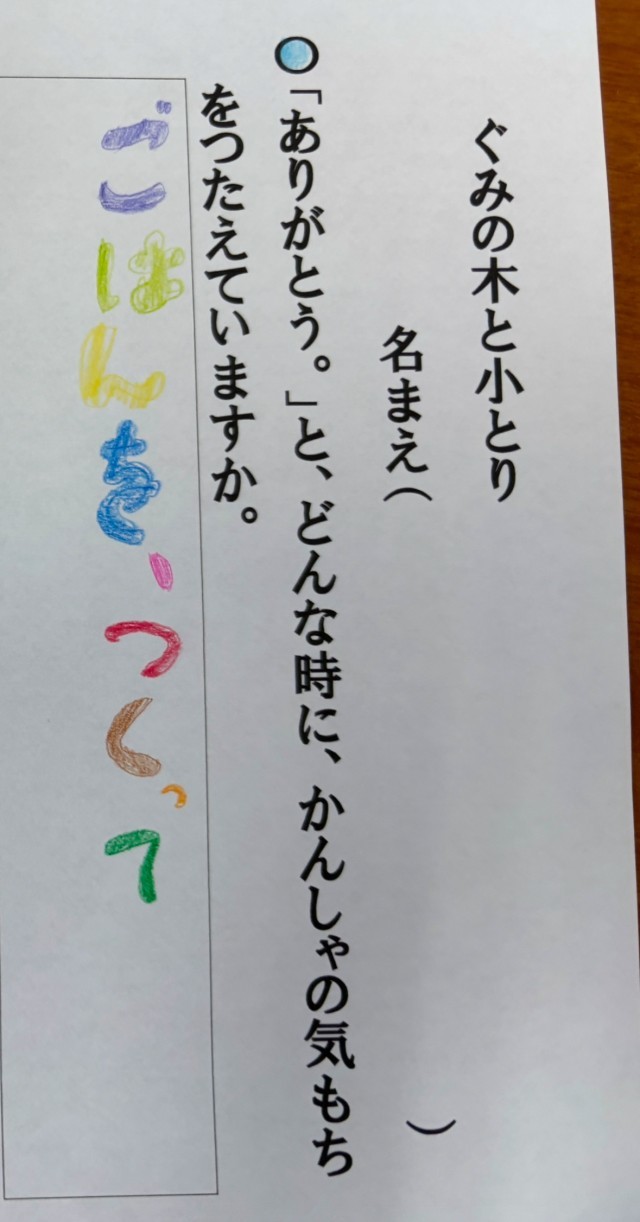 ぐみの木と小とり
名まえ( )
「ありがとう。」と、どんな時に、かんしゃの気もち
をつたえていますか。
ごはんを、つくって